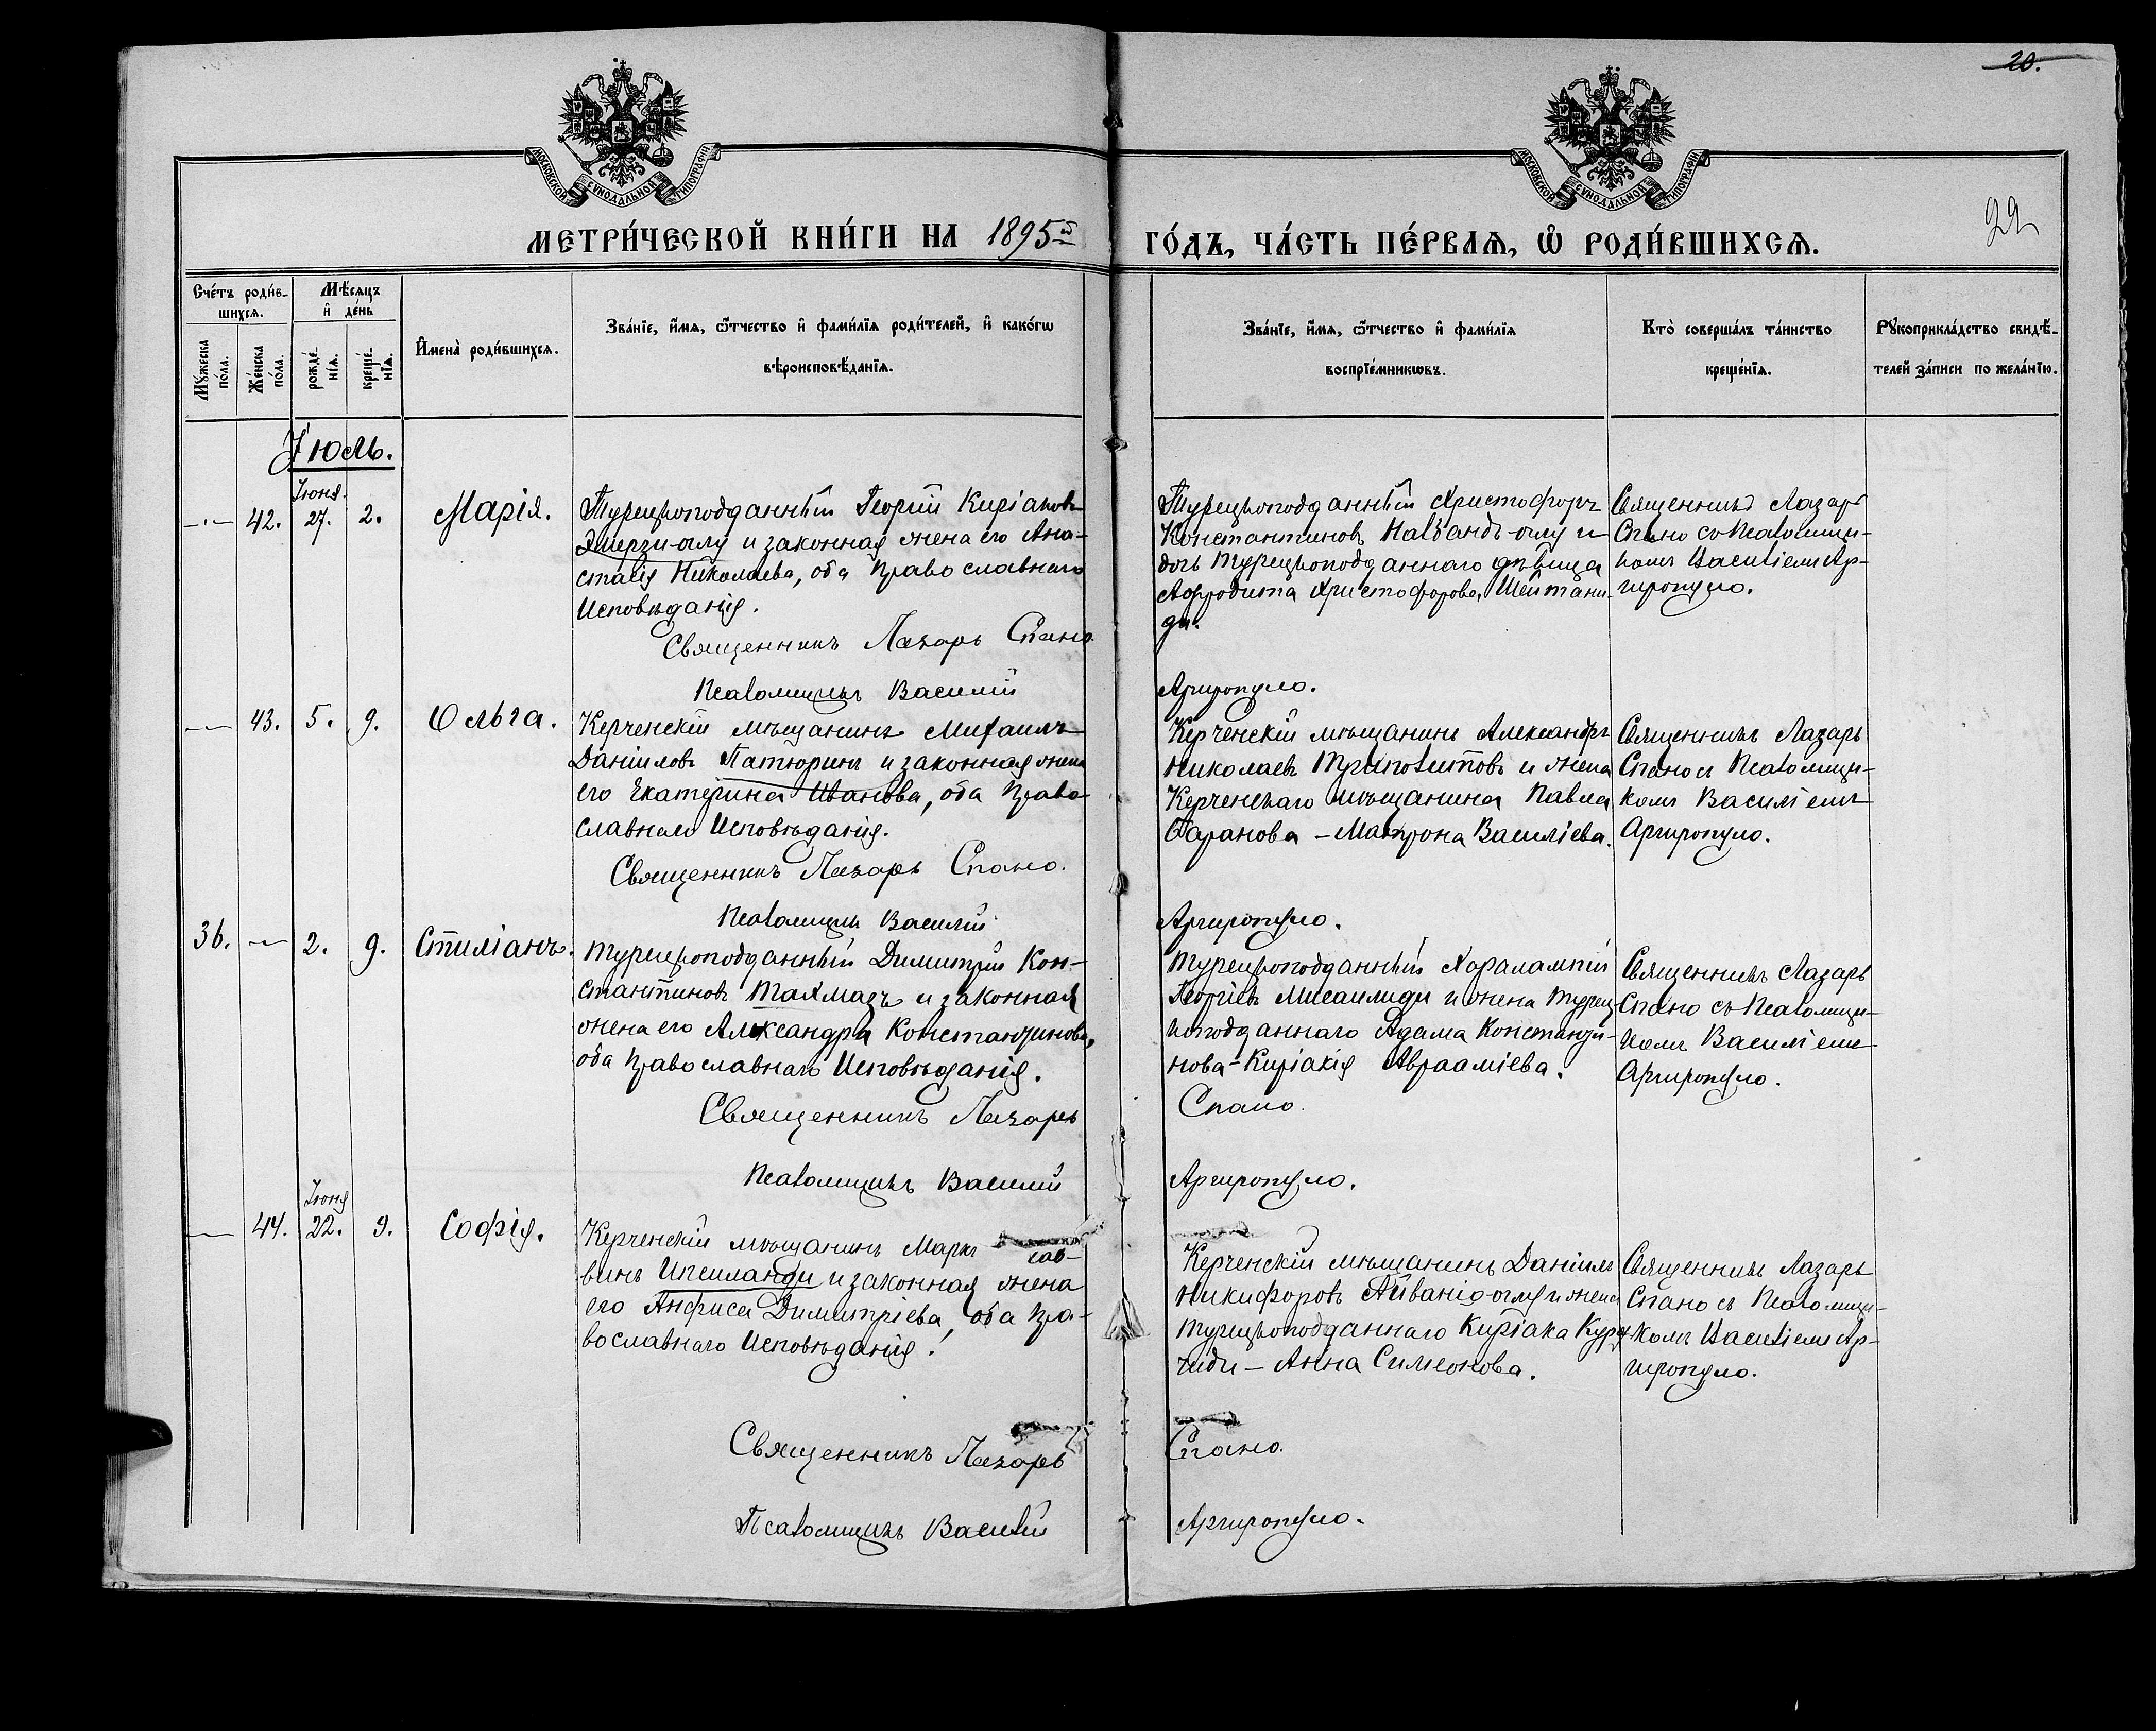 20.
МОСКОВСКОЙ СѴНОДАЛЬНОЙ ТИПОГРАФІИ
МОСКОВСКОЙ СѴНОДАЛЬНОЙ ТИПОГРАФІИ
22
МЕТРИ́ЧЕСКОЙ КНИ́ГИ НА 1895й ГО́ДЪ, ЧА́СТЬ ПЕ́РВАѦ, Ѽ РОДИ́ВШИХСѦ.
Сче́тъ роди́в-
шихсѧ.
Мꙋ́жеска по́ла.
Же́нска по́ла.
Мѣ́сѧцъ
и҆ де́нь
рожде́-
нїѧ.
креще́-
нїѧ.
И҆мена̀ роди́вшихсѧ.
Зва́нїе, и҆́мѧ, ѻ҆́тчество и҆ фами́лїѧ роди́телей, и҆ како́гѡ
вѣроисповѣ́данїѧ.
Зва́нїе, и҆́мѧ, ѻ҆́тчество и҆ фами́лїѧ
воспрїе́мникѡвъ.
Кто̀ соверша́лъ та́инство
креще́нїѧ.
Рꙋкоприкла́дство свидѣ́-
телей за́писи по жела́нїю.
Іюль.
— 42. Іюня. 27. 2. Марія.
Турецкоподданный Георгій Киріаковъ
Эмерзи-оглу и законная жена его Ана-
стасія Николаева, оба Православнаго
Исповѣданія.
Священникъ Лазарь Спано.
Псаломщикъ Василій Аргиропуло.
Турецкоподданный Христофоръ
Константиновъ Налбандъ-оглу и
дочь турецкоподданнаго дѣвица
Афродита Христофорова, Шейтани-
ди.
Священникъ Лазарь
Спано съ Псаломщи-
комъ Василіемъ Ар-
гиропуло.
— 43. 5. 9. Ольга.
Керченскій мѣщанинъ Михаилъ
Даніиловъ Патюринъ и законная жена
его Екатерина Иванова, оба Право-
славнаго Исповѣданія.
Священникъ Лазарь Спано.
Псаломщикъ Василій Аргиропуло.
Керченскій мѣщанинъ Александръ
Николаевъ Триполитовъ и жена
Керченскаго мѣщанина Павла
Баранова – Матрона Василіева.
Священникъ Лазарь
Спано съ Псаломщи-
комъ Василіемъ
Аргиропуло.
36. — 2. 9. Стиліанъ.
Турецкоподданный Димитрій Кон-
стантиновъ Тахмазъ и законная
жена его Александра Константинова,
оба Православнаго Исповѣданія.
Священникъ Лазарь Спано.
Псаломщикъ Василій Аргиропуло.
Турецкоподданный Харалампій
Георгіевъ Мисаилиди и жена турец-
коподданнаго Адама Константи-
нова – Киріакія Авраамієва.
Священникъ Лазарь
Спано съ Псаломщи-
комъ Василіемъ
Аргиропуло.
— 44. Іюня 22. 9. Софія.
Керченскій мѣщанинъ Маркъ Сав-
винъ Ипсиланди и законная жена
его Анфиса Димитріева, оба Пра-
вославнаго Исповѣданія.
Священникъ Лазарь Спано.
Псаломщикъ Василій Аргиропуло.
Керченскій мѣщанинъ Даніилъ
Никифоровъ Айваніа-оглу и жена
турецкоподданнаго Киріака
– Анна Симеонова.
Священникъ Лазарь
Спано съ Псаломщи-
комъ Василіемъ Ар-
гиропуло.